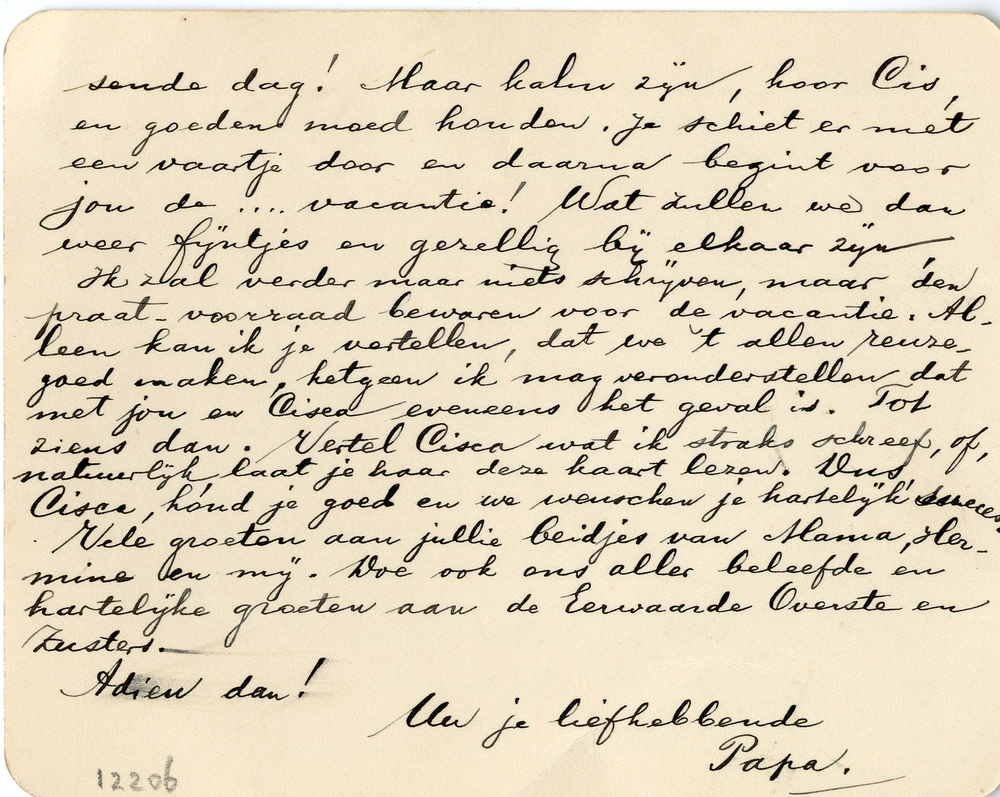 sende dag! Maar kalm zijn, hoor Cis,
en goeden moed houden. Je schiet er met
een vaartje door en daarna begint voor
jou de .... vacantie! Wat zullen we dan
weer fijntjes en gezellig bij elkaar zijn
Ik zal verder maar niets schrijven, maar den
praat-voorraad bewaren voor de vacantie. Al-
leen kan ik je vertellen, dat we 't allen reuze-
goed maken, hetgeen ik mag veronderstellen dat
met jou en Cisca eveneens het geval is. Tot
ziens dan. Vertel Cisca wat ik straks schreef, of,
natuurlijk laat je haar deze kaart lezen. Dus
Cisca, houd je goed en we wenschen je hartelijk succes
Vele groeten aan jullie beidjes van Mama, Her-
mine en mij. Doe ook ons aller beleefde en
hartelijke groeten aan de Eerwaarde Overste en
Zusters.
Adieu dan!
Uw je liefhebbende
Papa.
12206